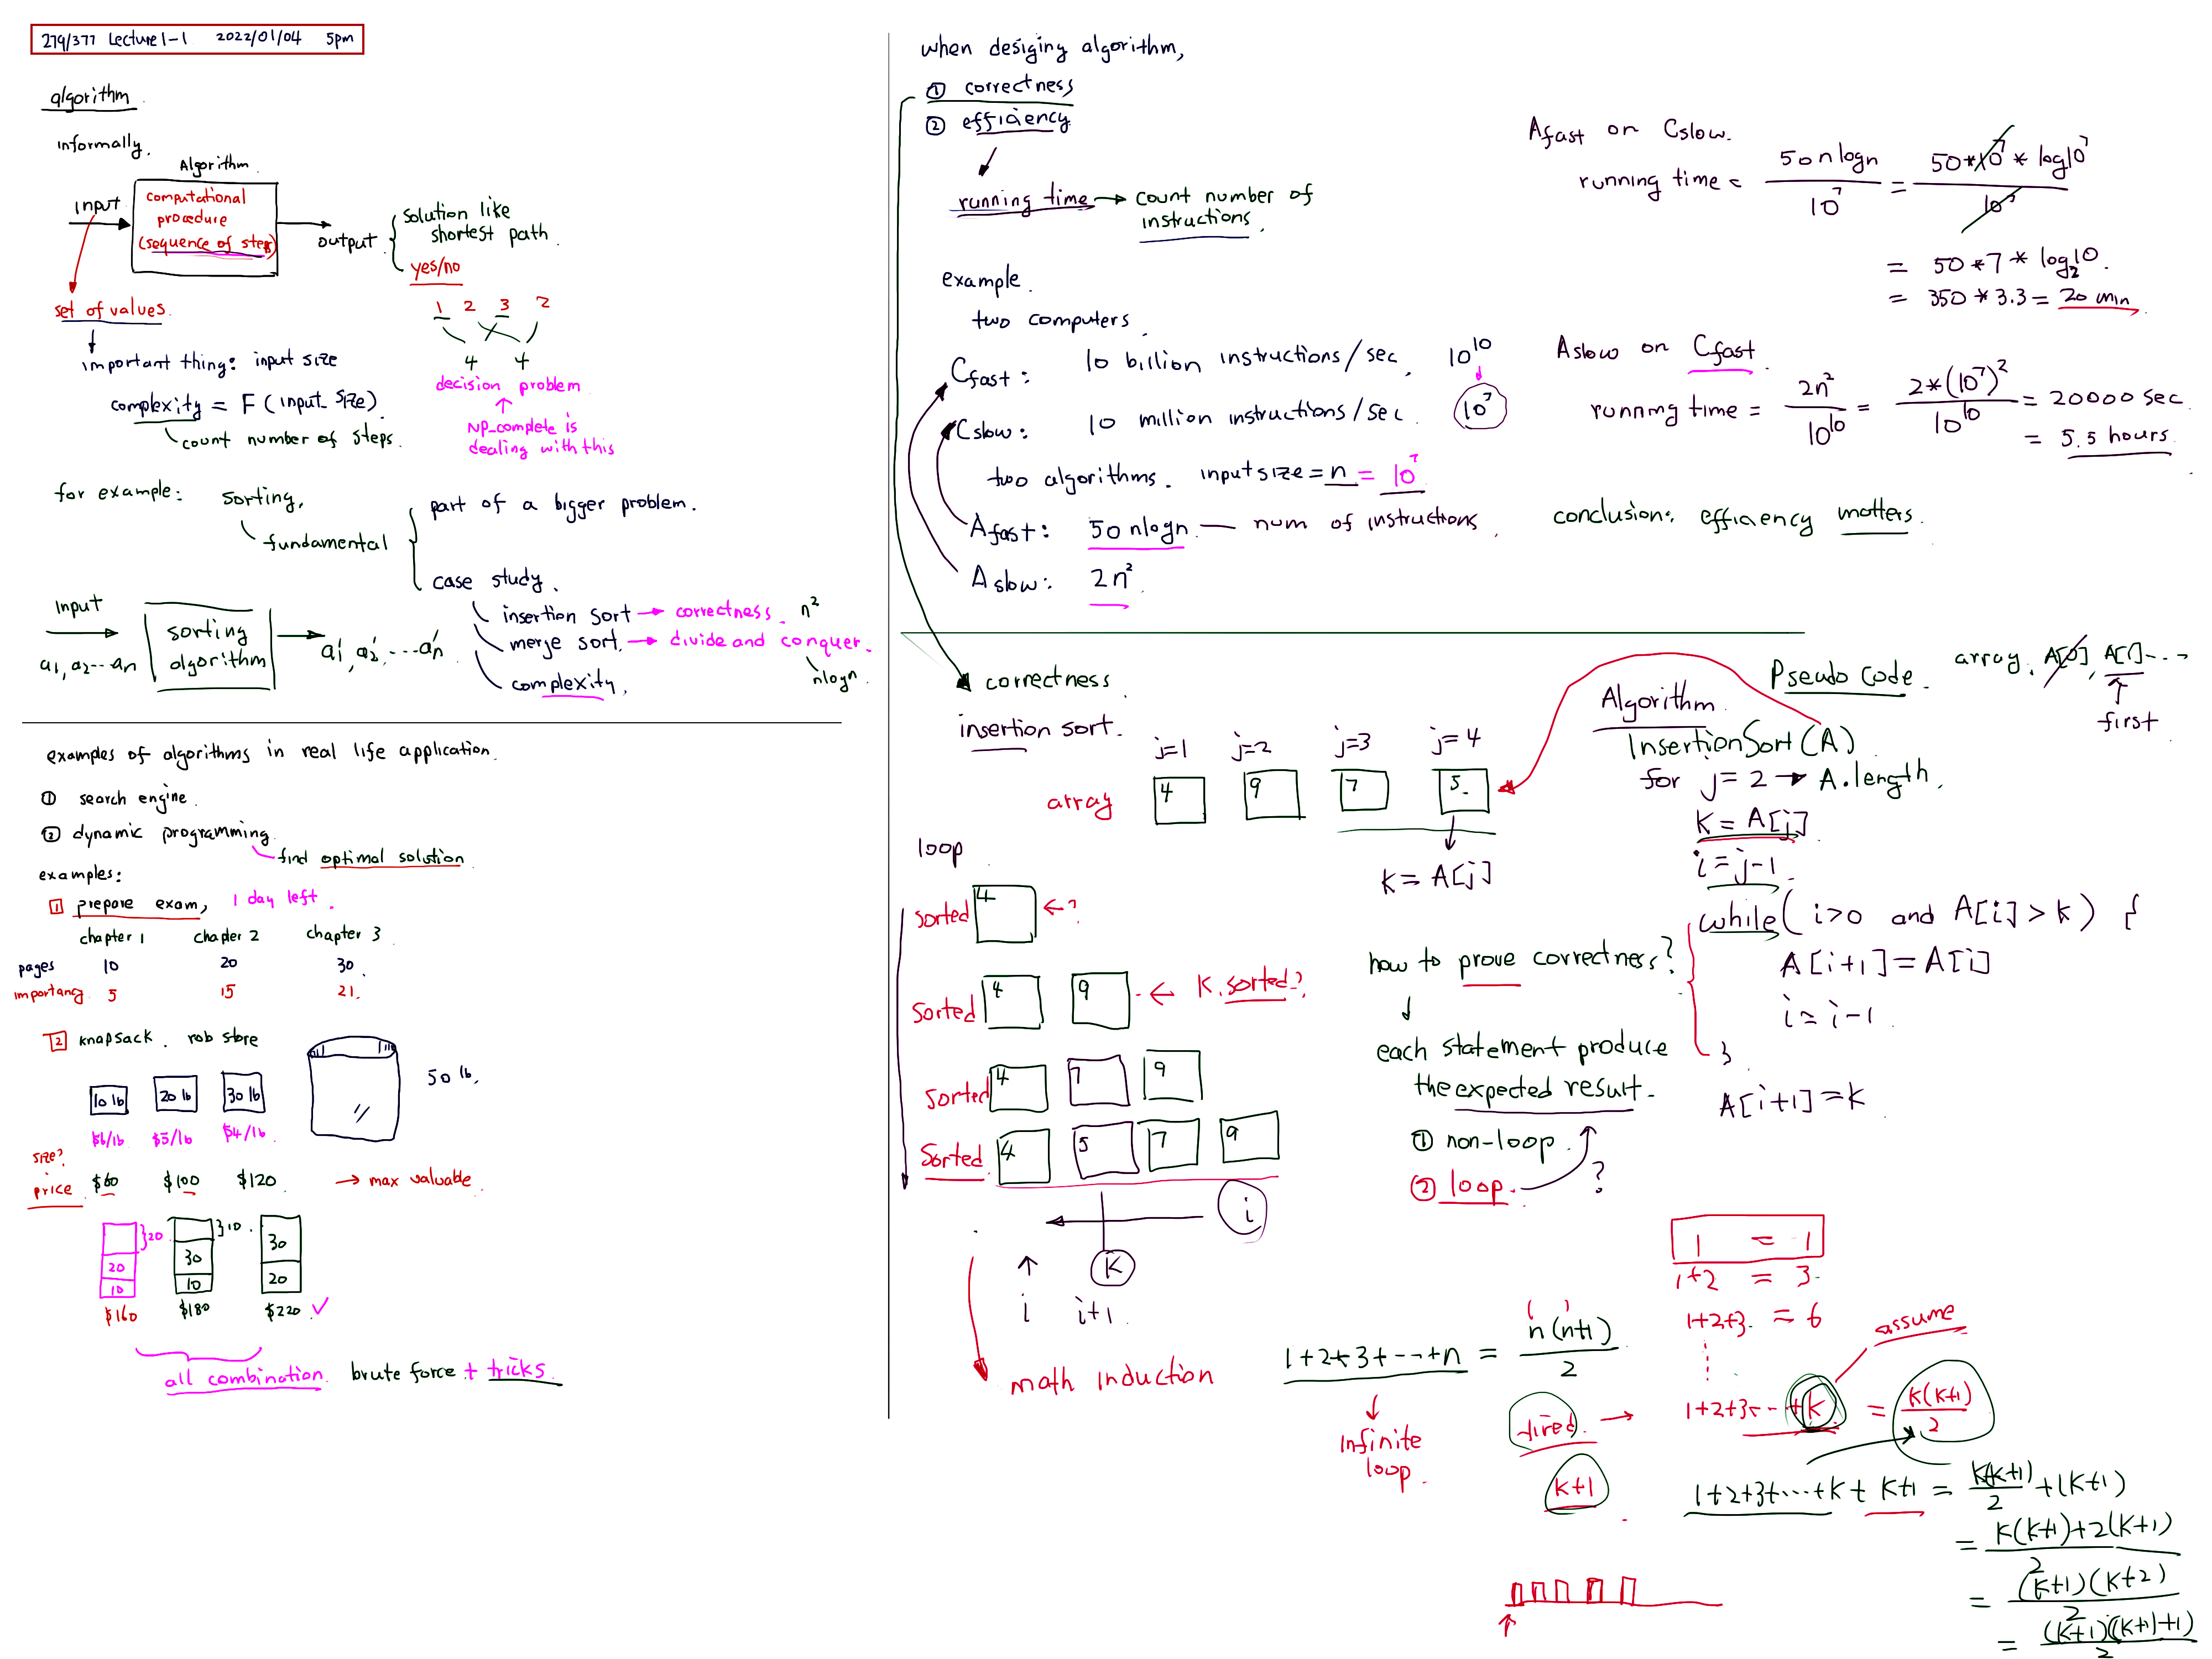 279/377 Lecture 1-1 2022/01/04 5pm
algorithm.
informally.
Algorithm.
input
computational
procedure
(sequence of steps)
output
solution like
shortest path.
yes/no
set of values.
1 2 3 2
4 4
decision problem
NP_complete is
dealing with this
important thing: input size
complexity = F (input_size).
count number of steps.
for example: sorting.
fundamental
part of a bigger problem.
case study.
insertion sort → correctness. n²
merge sort. → divide and conquer.
nlogn.
complexity.
input
a1, a2...an
sorting
algorithm
a1', a2', ...an'
examples of algorithms in real life application.
① search engine.
② dynamic programming.
find optimal solution
examples:
1 prepare exam, 1 day left.
chapter 1 chapter 2 chapter 3
pages 10 20 30
importancy 5 15 21.
2 knapsack. rob store
10 lb 20 lb 30 lb
50 lb.
$6/lb $5/lb $4/lb.
size?
price $60 $100 $120. → max valuable.
}20 }10
20 30 30
10 10 20
$160 $180 $220 ✓
all combination. brute force + tricks.
when desiging algorithm,
① correctness
② efficiency
running time → count number of
instructions.
example.
two computers.
Cfast: 10 billion instructions/sec. 10^10
Cslow: 10 million instructions/sec. 10^7
two algorithms. input size = n = 10^7
Afast: 50 nlogn — num of instructions.
Aslow: 2n².
Afast on Cslow.
running time = 50nlogn / 10^7 = 50*10^7 * log10^7 / 10^7
= 50*7*log₂10.
= 350*3.3 = 20 min
Aslow on Cfast.
running time = 2n² / 10^10 = 2*(10^7)² / 10^10 = 20000 sec.
= 5.5 hours.
conclusion: efficiency matters.
correctness.
insertion sort.
j=1 j=2 j=3 j=4
array 4 9 7 5.
K = A[j]
loop
sorted 4 ←?
Sorted 4 9 ← K. sorted?
Sorted 4 7 9
Sorted. 4 5 7 9
i
K
i i+1.
math induction
how to prove correctness?
each statement produce
the expected result.
① non-loop.
② loop. ?
Pseudo Code. array. A[0], A[1]...
first
Algorithm.
InsertionSort(A)
for j=2 → A.length.
K = A[j]
i = j-1.
while( i>0 and A[i] > K) {
A[i+1] = A[i]
i = i-1.
}
A[i+1] = K.
1 = 1
1+2 = 3.
1+2+3. = 6
assume
1+2+3+...+n = n(n+1) / 2
infinite
loop.
tired. → 1+2+3...+k = k(k+1) / 2
k+1
1+2+3+...+k + k+1 = k(k+1) / 2 + (k+1)
= k(k+1)+2(k+1) / 2
= (k+1)(k+2) / 2
= (k+1)((k+1)+1) / 2